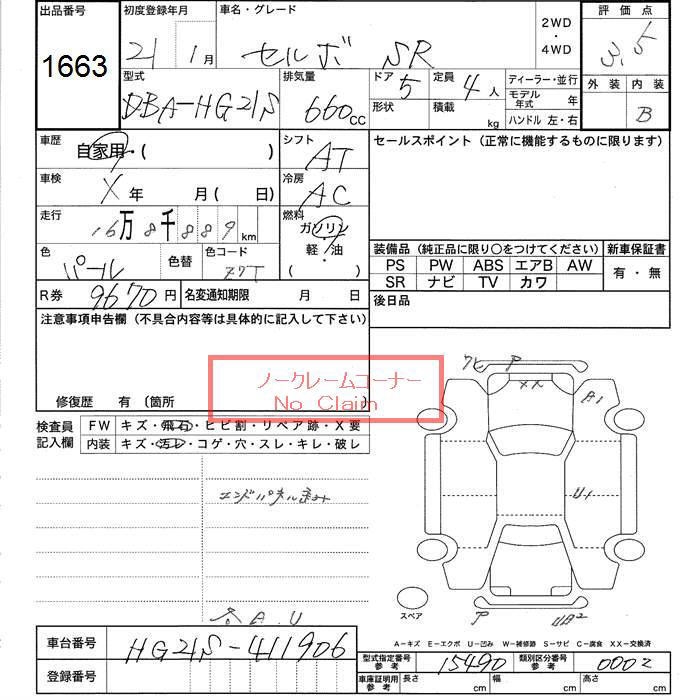 出品番号 初度登録年月 車名・グレード 2WD ・ 4WD 評価点
1663 21 1月 セルボ SR 3.5
型式 排気量 ドア 定員 ディーラー・並行 外装 内装
DBA-HG21S 660cc 5 4人 モデル年式 年 B
形状 積載 kg ハンドル 左・右
車歴 自家用・( ) シフト AT セールスポイント (正常に機能するものに限ります)
車検 X年 月( 日) 冷房 AC
走行 16万8千889km 燃料 ガソリン
軽・油
( )
色 パール 色替 色コード Z7T
装備品 (純正品に限り○をつけてください) 新車保証書
PS PW ABS エアB AW 有・無
SR ナビ TV カワ
R券 9670円 名変通知期限 月 日 後日品
注意事項申告欄 (不具合内容等は具体的に記入して下さい)
ノークレームコーナー
No Claim
修復歴 有 (箇所
検査員 FW キズ・飛石・ヒビ割・リペア跡・X要
記入欄 内装 キズ・汚レ・コゲ・穴・スレ・キレ・破レ
ワレ ア
メス A1
エンドパネル歪み U1
スペア ア UB2
A.U
A-キズ E-エクボ U-凹み W-補修跡 S-サビ C-腐食 XX-交換済
車台番号 HG21S-411906
型式指定番号 参考 15490 類別区分番号 参考 0002
登録番号
車庫証明用 参考 長さ cm 幅 cm 高さ cm